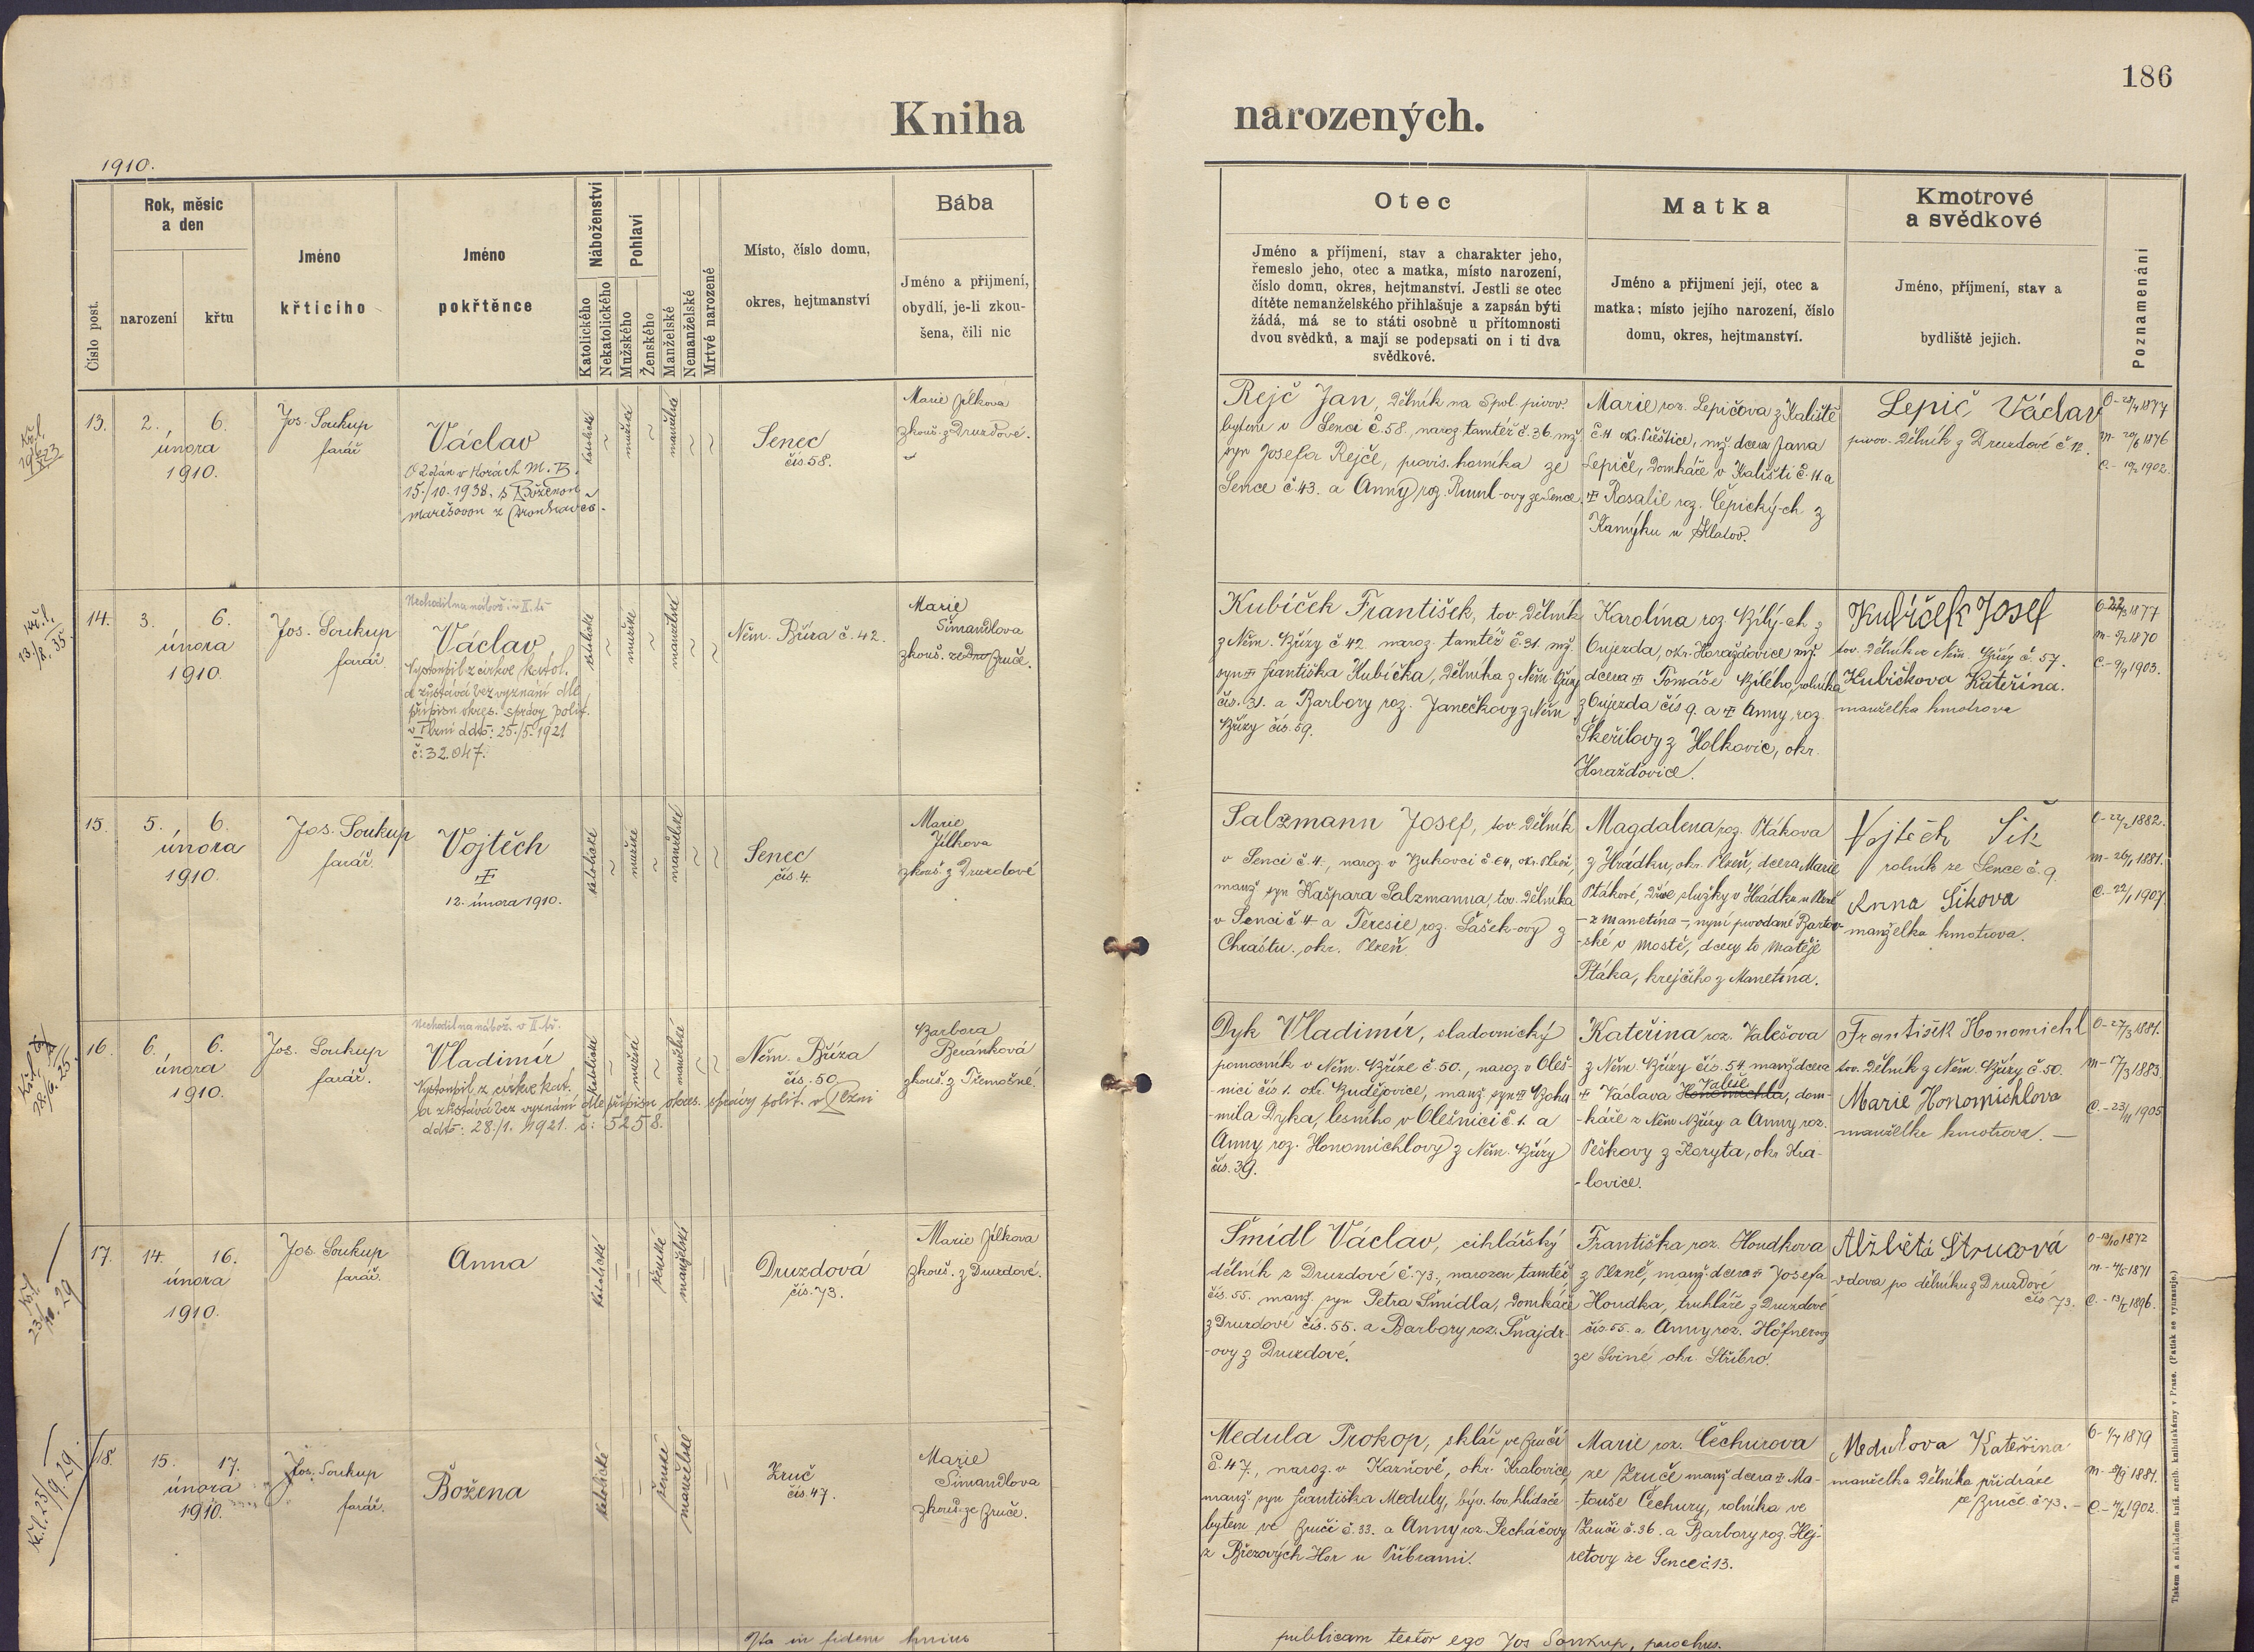 186
Kniha narozených.
1910.
Číslo post.
Rok, měsíc
a den
narození
křtu
Jméno
křticího
Jméno
pokřtěnce
Náboženství
Katolického
Nekatolického
Pohlaví
Mužského
Ženského
Manželské
Nemanželské
Mrtvě narozené
Místo, číslo domu,
okres, hejtmanství
Bába
Jméno a přijmení,
obydlí, je-li zkou-
šena, čili nic
Otec
Jméno a příjmení, stav a charakter jeho,
řemeslo jeho, otec a matka, místo narození,
číslo domu, okres, hejtmanství. Jestli se otec
dítěte nemanželského přihlašuje a zapsán býti
žádá, má se to státi osobně u přítomnosti
dvou svědků, a mají se podepsati on i ti dva
svědkové.
Matka
Jméno a přijmení její, otec a
matka; místo jejího narození, číslo
domu, okres, hejtmanství.
Kmotrové
a svědkové
Jméno, příjmení, stav a
bydliště jejich.
Poznamenání
13.
2. 6.
února
1910.
Jos. Soukup
farář
Václav
15./10. 1938. s Boženou
katolické
mužské
manželské
Senec
čís. 58.
Marie Jílková
zkouš. z Druzdové.
Rejč Jan, dělník na Spol. pivov.
bytem v Senci č. 58., naroz. tamtéž č. 36. mž.
syn Josefa Rejče, provis. horníka ze
Sence č. 43. a Anny roz. Ruml-ovy ze Sence
Marie roz. Lepičova z Kaliště
č. 11 okr. Přeštice, mž. dcera Jana
Lepiče, domkáře v Kališti č. 11. a
Rosalie roz. Čepický-ch z
Kamýku u Klatov.
Lepič Václav
pivov. dělník z Druzdové č. 12.
14.
3. 6.
února
1910.
Jos. Soukup
farář
Nechodil na nábož. v II. tř.
Václav
Vystoupil z církve katol.
a zůstává bez vyznání dle
přípisu okres. správy polit.
v Plzni ddto: 25./5. 1921
č: 32.047.
katolické
mužské
manželské
Něm. Bříza č. 42.
Marie
Šimandlova
zkouš. ze Zruče.
Kubíček František, tov. dělník
z Něm. Břízy č. 42 naroz. tamtéž č. 31. mž.
syn Františka Kubíčka, dělníka z Něm. Břízy
čís. 31. a Barbory roz. Janečkovy z Něm.
Břízy čís. 59.
Karolína roz. Bílý-ch z
Oujezda, okr. Horažďovice mž.
dcera Tomáše Bílého, rolníka
z Oujezda čís 9. a Anny roz.
Škeřilovy z Holkovic, okr.
Horažďovice.
Kubíček Josef
tov. dělník z Něm. Břízy č. 57.
Kubíčkova Kateřina.
manželka kmotrova
15.
5. 6.
února
1910.
Jos. Soukup
farář.
Vojtěch
12. února 1910.
katolické
mužské
manželské
Senec
čís. 4.
Marie
Jílkova
zkouš. z Druzdové
Salzmann Josef, tov. dělník
v Senci č. 4., naroz. v Bukovci č. 64, okr. Plzeň,
manž. syn Kašpara Salzmanna, tov. dělníka
v Senci č. 4. a Teresie roz. Šašek-ovy z
Chrástu, okr. Plzeň.
Magdalena roz. Ptákova
z Hrádku, okr. Plzeň, dcera Marie
Ptákové, dříve služky v Hrádku u Plzně
- z Manetína -, nyní provdané Bartov-
-ské v Mostě, dcery to Matěje
Ptáka, krejčího z Manetína.
Vojtěch Šik
rolník ze Sence č. 9.
Anna Šikova
manželka kmotrova.
16.
6. 6.
února
1910.
Jos. Soukup
farář.
Nechodil na nábož. v II. tř.
Vladimír
Vystoupil z církve kat.
a zůstává bez vyznání dle přípisu okres. správy polit. v Plzni
ddto: 28./1. 1921. č: 5258.
katolické
mužské
manželské
Něm. Bříza
čís. 50.
Barbora
Beránková
zkouš. z Třemošné.
Dyk Vladimír, sladovnický
pomocník v Něm. Bříze č. 50., naroz. v Oleš-
-nici čís 1. okr. Budějovice, manž. syn Bohu-
-mila Dyka, lesního v Olešnici č. 1. a
Anny roz. Honomichlovy z Něm. Břízy
čís. 39.
Kateřina roz. Valešova
z Něm. Břízy čís. 54. manž. dcera
Václava Honomichla Valeše, dom-
-káře z Něm. Břízy a Anny roz.
Peškovy z Koryta, okr. Kra-
-lovice.
František Honomichl
tov. dělník z Něm. Břízy č. 50.
Marie Honomichlova
manželka kmotrova. —
17.
14. 16.
února
1910.
Jos. Soukup
farář.
Anna
katolické
ženské
manželské
Druzdová
čís. 73.
Marie Jílkova
zkouš. z Druzdové.
Šmídl Václav, cihlářský
dělník z Druzdové č. 73., narozen tamtéž
čís. 55. manž. syn Petra Šmídla, domkáře
z Druzdové čís. 55. a Barbory roz. Šnajdr-
-ovy z Druzdové.
Františka roz. Houdkova
z Plzně, manž. dcera Josefa
Houdka, truhláře z Druzdové
čís. 55. a Anny roz. Höfnerovy
ze Sviné okr. Stříbro.
Alžběta Strucová
vdova po dělníku z Druzdové
čís 73.
18.
15. 17.
února
1910.
Jos. Soukup
farář.
Božena
katolické
ženské
manželské
Zruč
čís. 47.
Marie
Šimandlova
zkouš. ze Zruče.
Medula Prokop, sklář ve Zruči
č. 47., naroz. v Kazňově, okr. Kralovice,
manž. syn Františka Meduly, býv. tov. hlídače
bytem ve Zruči č. 33. a Anny roz. Pecháčovy
z Březových Hor u Příbrami.
Marie roz. Čechurova
ze Zruče manž. dcera Ma-
-touše Čechury, rolníka ve
Zruči č. 36. a Barbory roz. Hej-
retovy ze Sence č. 13.
Medulova Kateřina
manželka dělníka při dráze
ze Zruče č. 73. -
Ita in fidem hujus publicam testor ego Jos Soukup, parochus.
Tiskem a nákladem kníž. arcib. knihtiskárny v Praze. (Patisk se vyhrazuje.)